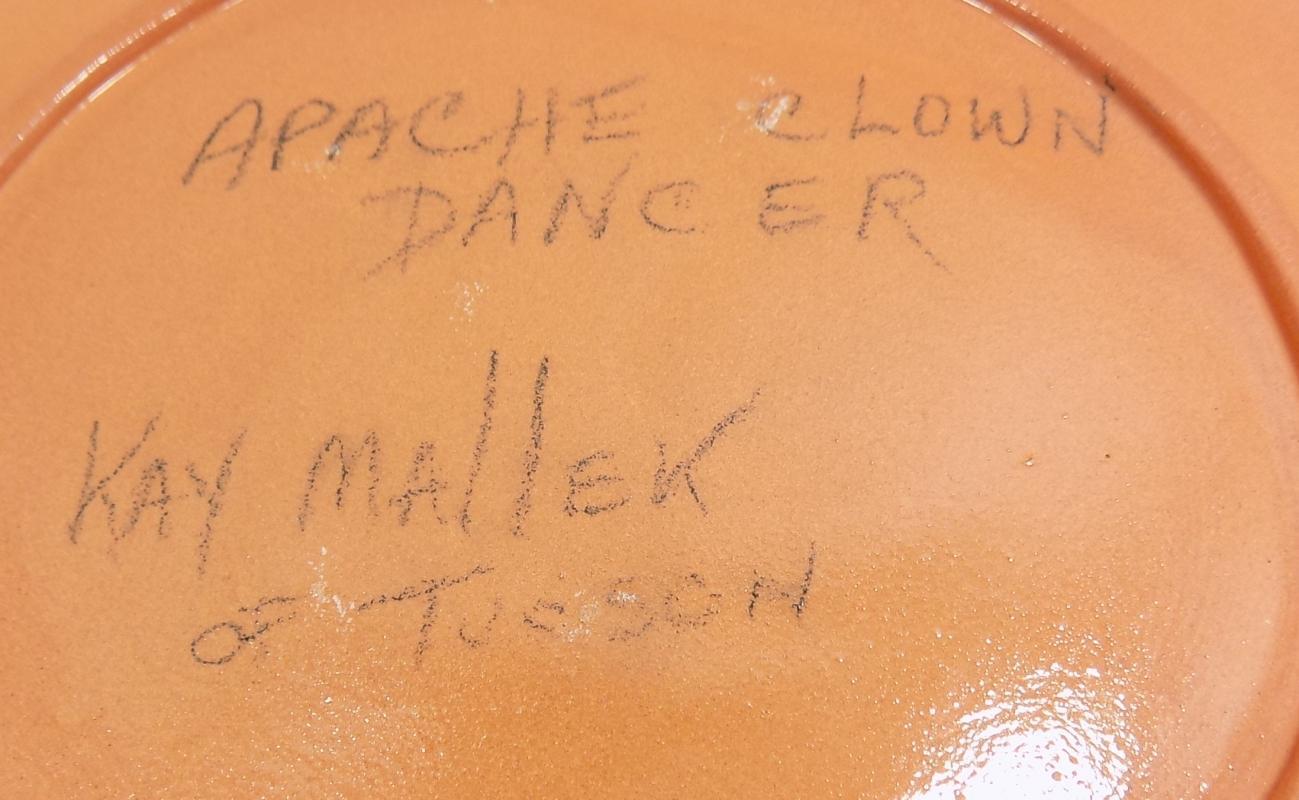 APACHE CLOWN
DANCER
KAY MAllEK
OF TUCSON